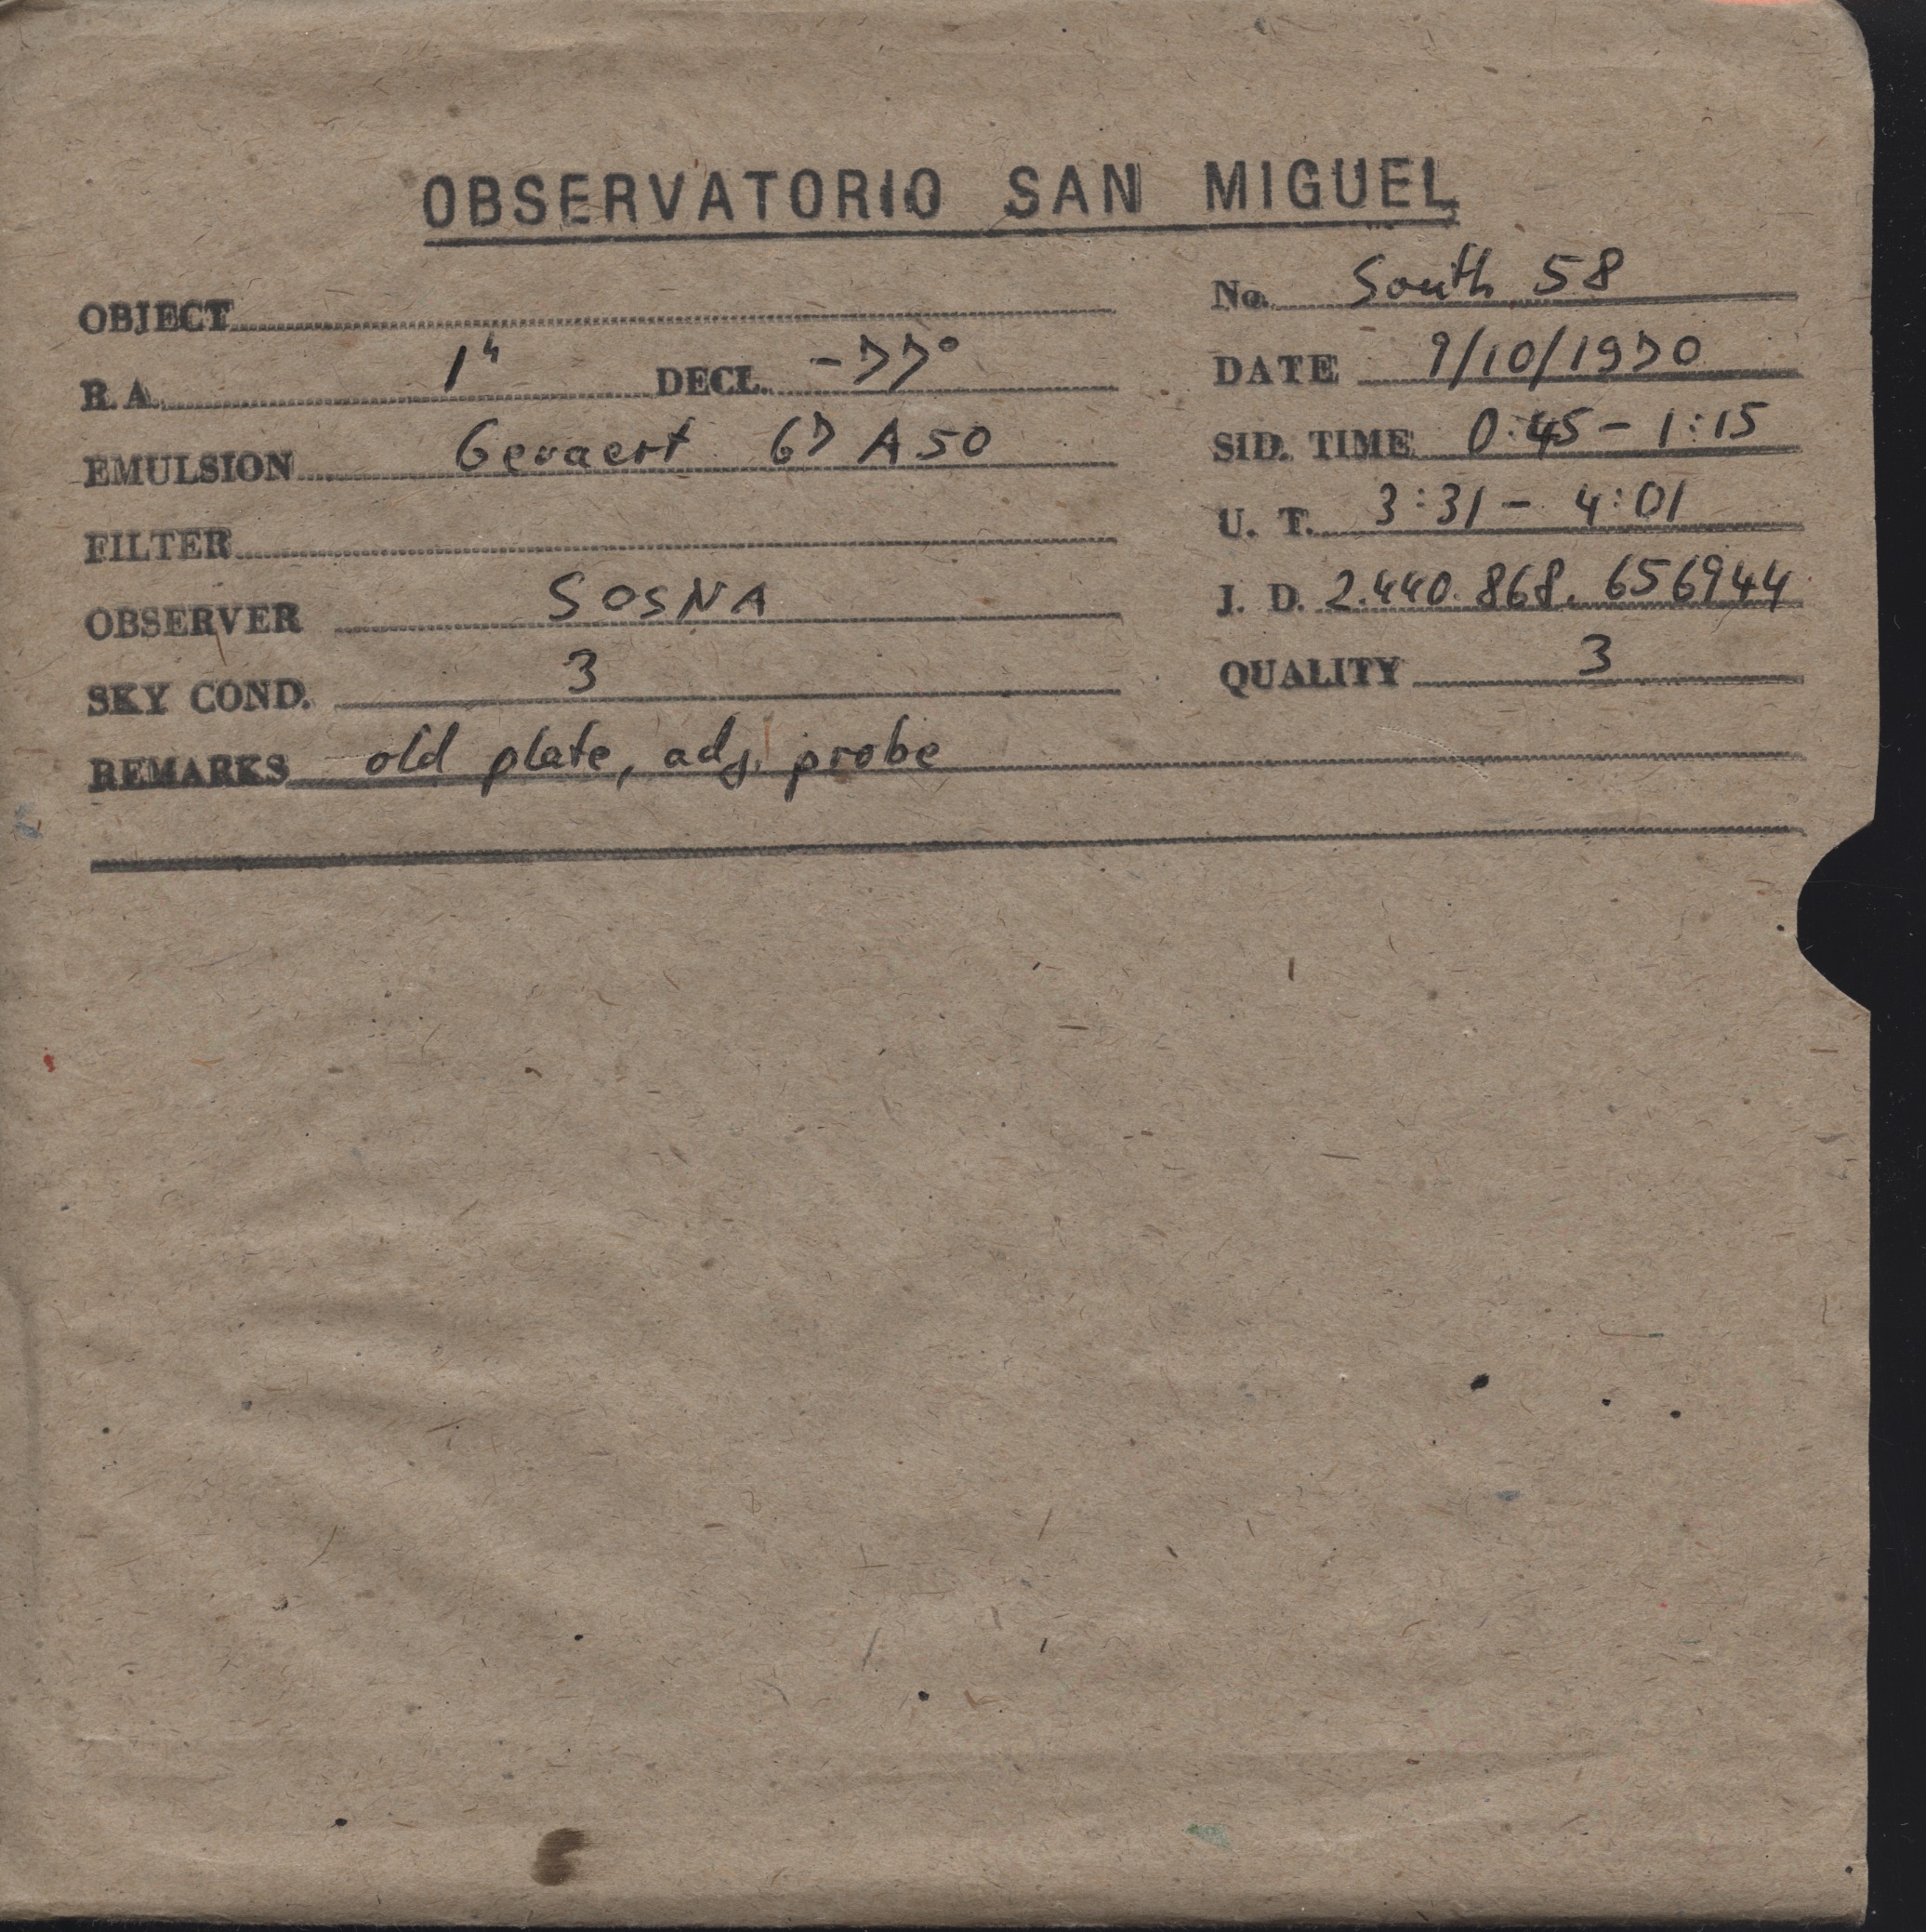 OBSERVATORIO SAN MIGUEL
OBJECT
No. South 58
R.A. 1h DECL. -77°
DATE 9/10/1970
EMULSION Gevaert 67 A 50
SID. TIME 0:45 - 1:15
FILTER
U. T. 3:31 - 4:01
OBSERVER SOSNA
J. D. 2.440.868.656944
SKY COND. 3
QUALITY 3
REMARKS old plate, adj. probe